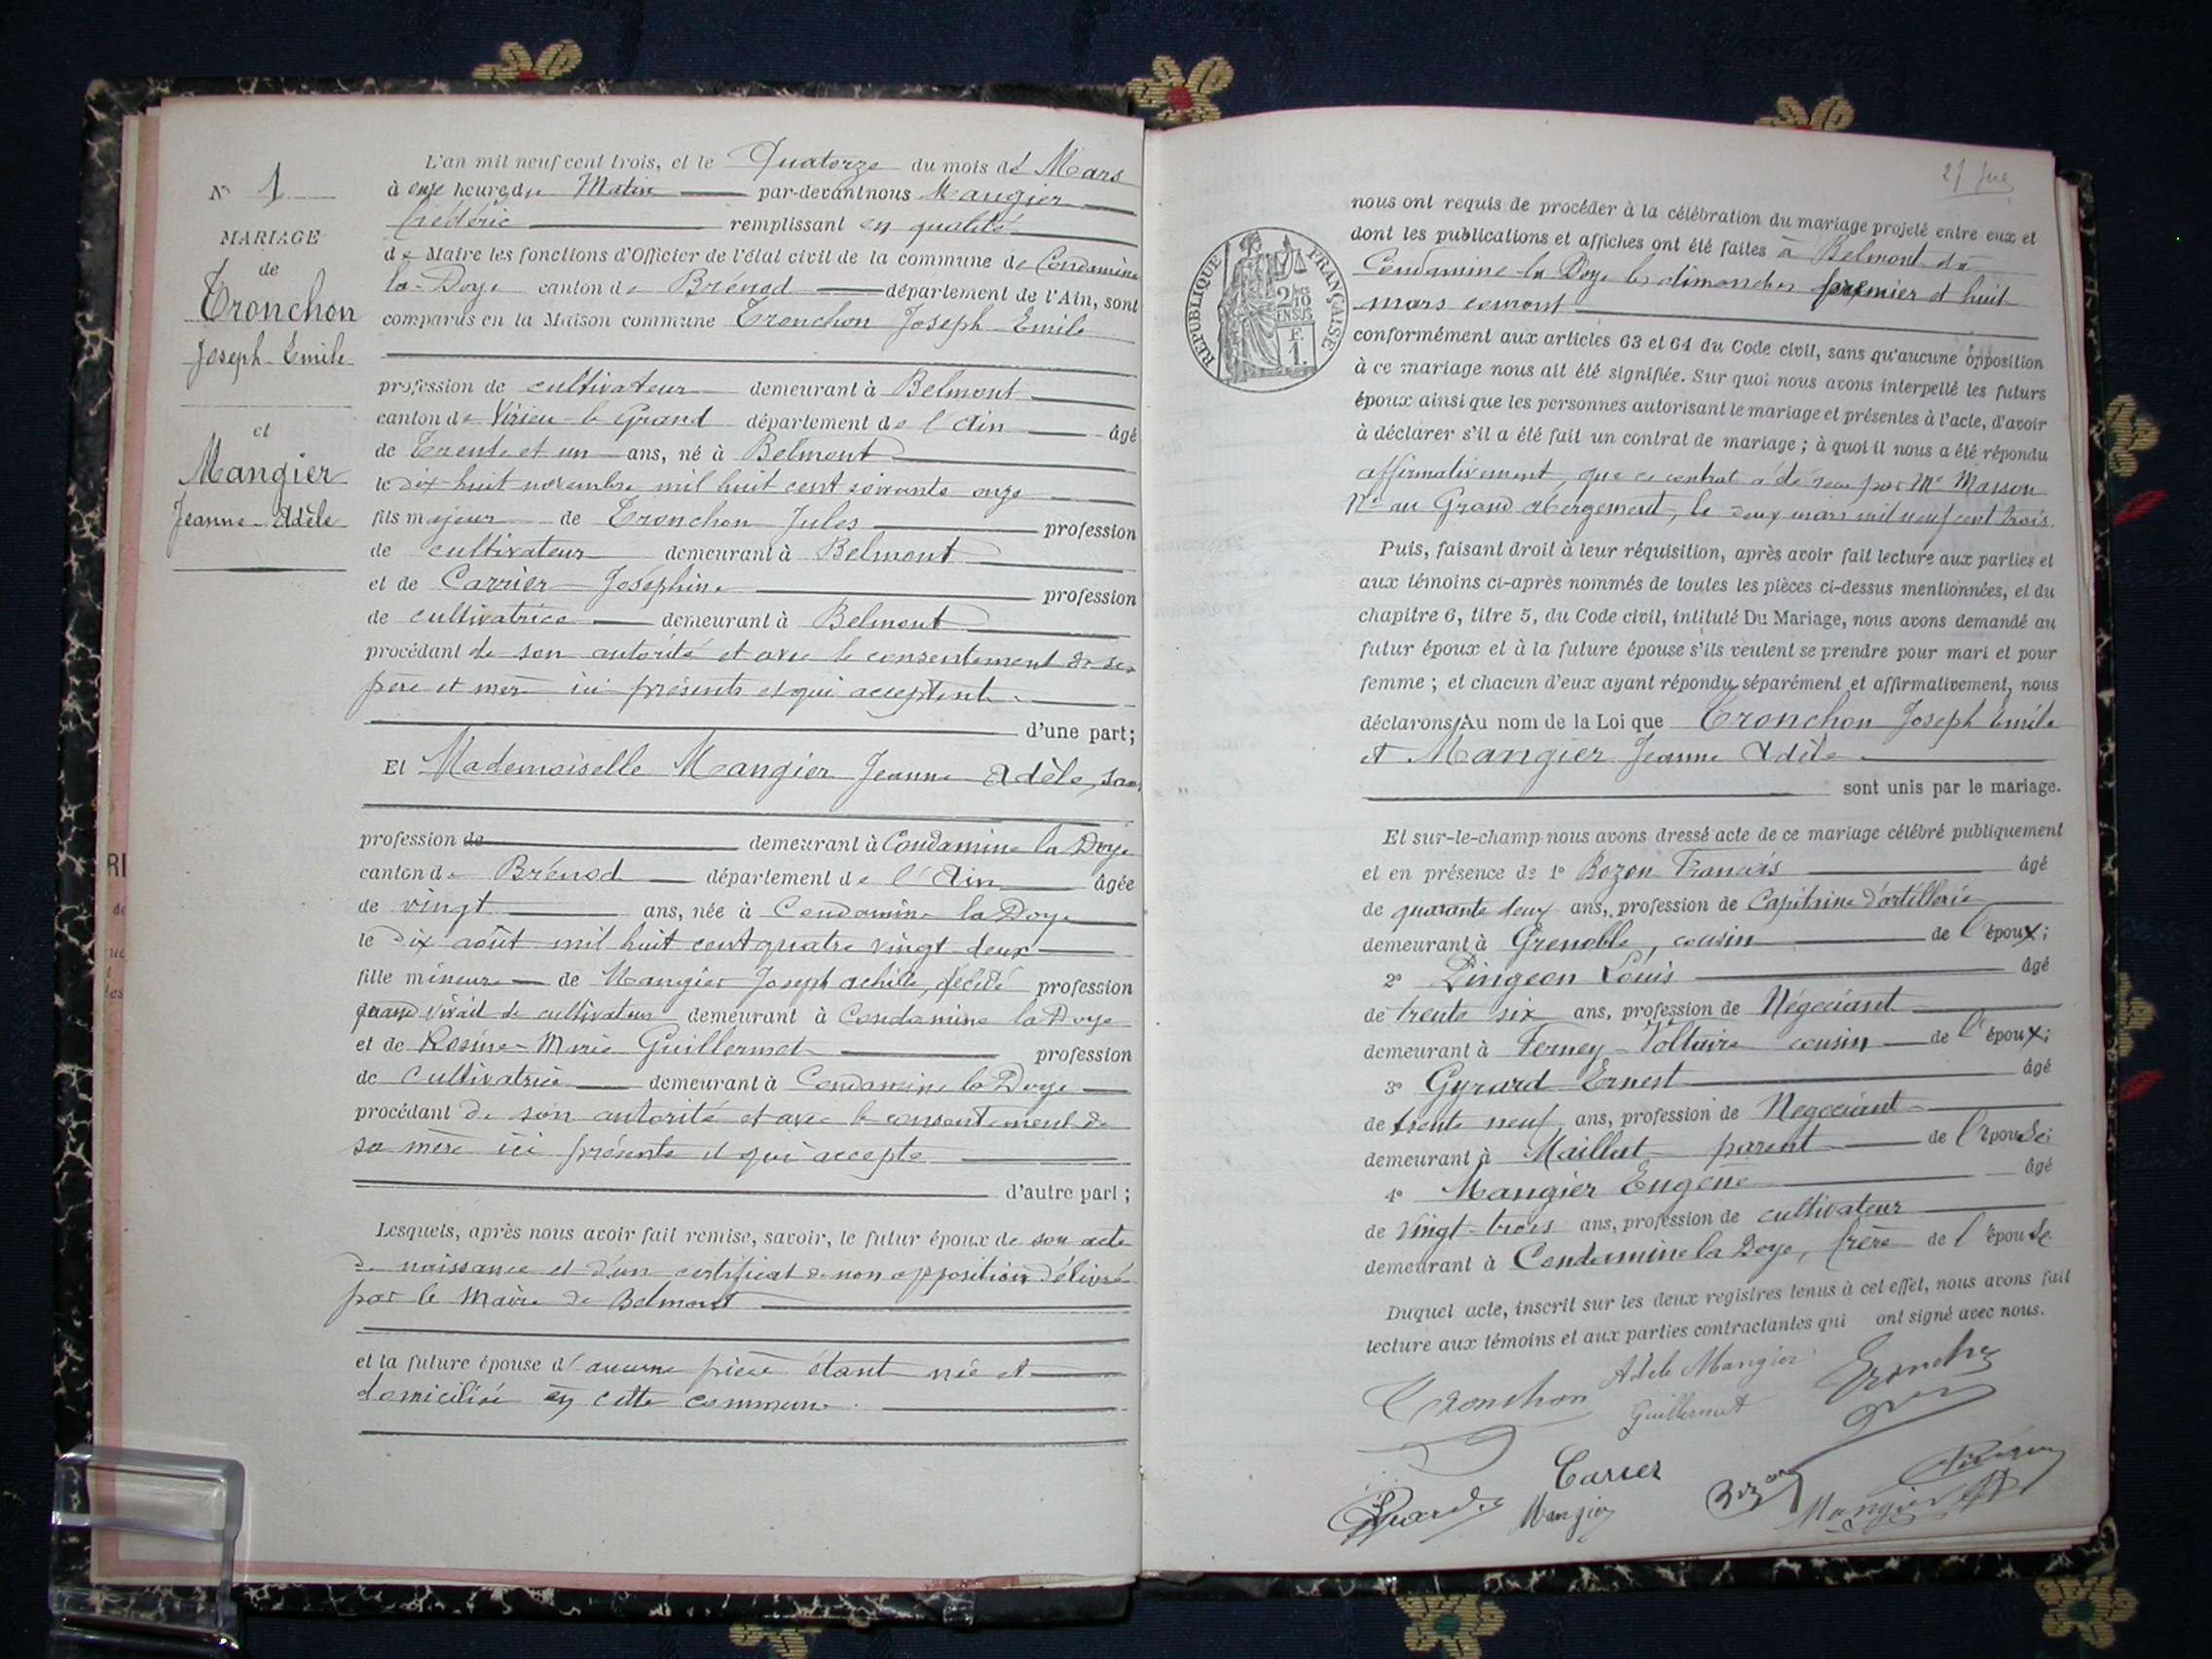 N° 1
MARIAGE
de
Tronchon
Joseph-Emile
et
Mangier
Jeanne-Adèle
L'an mil neuf cent trois, et le Quatorze du mois de Mars
à onze heures du Matin par-devant nous Mangier
Frédéric remplissant en qualité
de Maire les fonctions d'Officier de l'état civil de la commune de Condamine
la-Doye canton de Brénod département de l'Ain, sont
comparus en la Maison commune Tronchon Joseph-Emile
profession de cultivateur demeurant à Belmont
canton de Virieu-le-Grand département de l'Ain âgé
de Trente et un ans, né à Belmont
le dix-huit novembre mil huit cent soixante onze
fils majeur de Tronchon Jules profession
de cultivateur demeurant à Belmont
et de Carrier Joséphine profession
de cultivatrice demeurant à Belmont
procédant de son autorité et avec le consentement de ses
père et mère ici présents et qui acceptent
d'une part;
Et Mademoiselle Mangier Jeanne Adèle, sans
profession de demeurant à Condamine la Doye
canton de Brénod département de l'Ain âgée
de vingt ans, née à Condamine la Doye
le dix août mil huit cent quatre vingt-deux
fille mineure de Mangier Joseph achille, décédé profession
quand vivait de cultivateur demeurant à Condamine la Doye
et de Rosine-Marie Guillermet profession
de Cultivatrice demeurant à Condamine la Doye
procédant de son autorité et avec le consentement de
sa mère ici présente et qui accepte
d'autre part;
Lesquels, après nous avoir fait remise, savoir, le futur époux de son acte
de naissance et d'un certificat de non opposition délivré
par le Maire de Belmont
et la future épouse d'aucune pièce étant née et
domiciliée en cette commune.
RÉPUBLIQUE FRANÇAISE
2/10
EN SUS
E
1.
nous ont requis de procéder à la célébration du mariage projeté entre eux et
dont les publications et affiches ont été faites à Belmont et à
Condamine la Doye les dimanches premier et huit
mars courant
conformément aux articles 63 et 64 du Code civil, sans qu'aucune opposition
à ce mariage nous ait été signifiée. Sur quoi nous avons interpellé les futurs
époux ainsi que les personnes autorisant le mariage et présentes à l'acte, d'avoir
à déclarer s'il a été fait un contrat de mariage; à quoi il nous a été répondu
affirmativement, que ce contrat a été reçu par Me Masson
Nre au Grand abergement, le deux mars mil neuf cent trois.
Puis, faisant droit à leur réquisition, après avoir fait lecture aux parties et
aux témoins ci-après nommés de toutes les pièces ci-dessus mentionnées, et du
chapitre 6, titre 5, du Code civil, intitulé Du Mariage, nous avons demandé au
futur époux et à la future épouse s'ils veulent se prendre pour mari et pour
femme; et chacun d'eux ayant répondu séparément et affirmativement, nous
déclarons, Au nom de la Loi que Tronchon Joseph Emile
et Mangier Jeanne Adèle
sont unis par le mariage.
Et sur-le-champ nous avons dressé acte de ce mariage célébré publiquement
et en présence de 1° Bozon Francois âgé
de quarante deux ans, profession de Capitaine d'artillerie
demeurant à Grenoble, cousin de l'époux;
2° Pingeon Louis âgé
de trente six ans, profession de Négociant
demeurant à Ferney-Voltaire cousin de l'époux;
3° Gyrard Ernest âgé
de trente neuf ans, profession de Negociant
demeurant à Maillat parent de l'épouse;
4° Mangier Eugène âgé
de vingt-trois ans, profession de cultivateur
demeurant à Condamine la Doye, frère de l'épouse
Duquel acte, inscrit sur les deux registres tenus à cet effet, nous avons fait
lecture aux témoins et aux parties contractantes qui ont signé avec nous.
Tronchon Adèle Mangier Tronchon
Guillermet
Carrier
Mangier Mangier